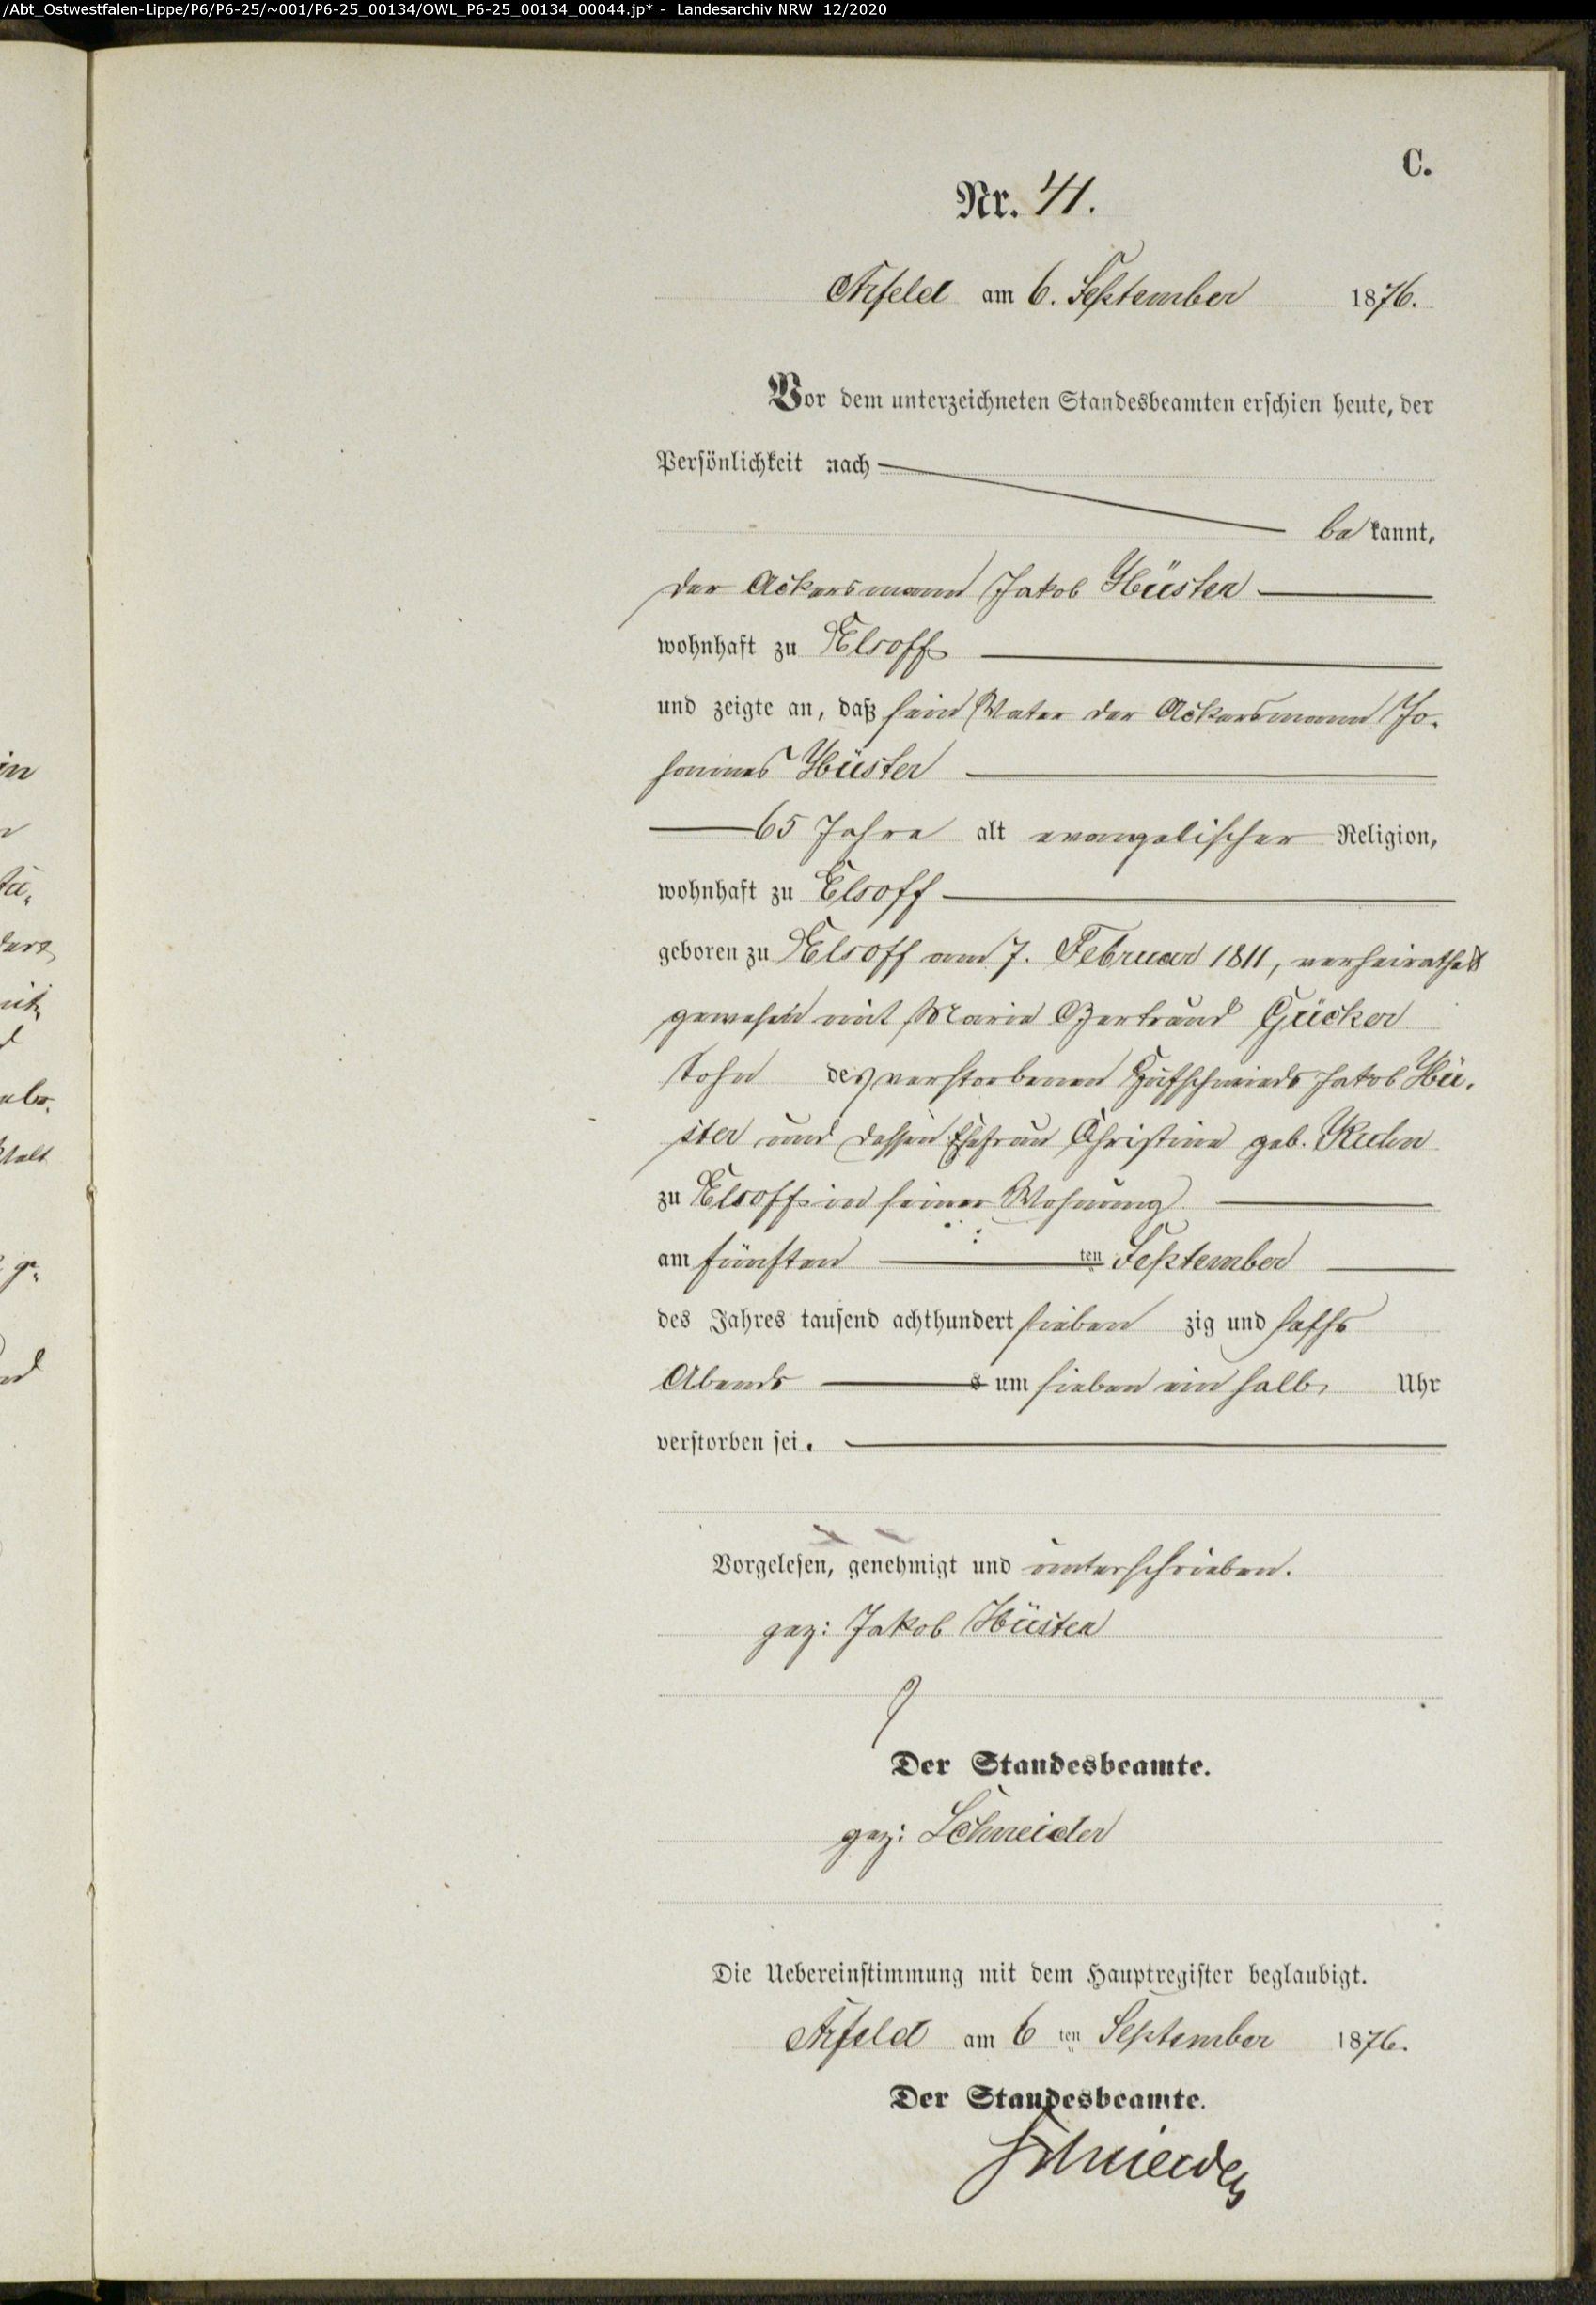 /Abt_Ostwestfalen-Lippe/P6/P6-25/~001/P6-25_00134/OWL_P6-25_00134_00044.jp* - Landesarchiv NRW 12/2020
C.
Nr. 41.
Arfeld am 6. September 1876.
Vor dem unterzeichneten Standesbeamten erschien heute, der
Persönlichkeit nach
bekannt,
der Ackersmann Jakob Hüster
wohnhaft zu Elsoff
und zeigte an, daß sein Vater der Ackersmann Jo-
hannes Hüster
65 Jahre alt evangelischer Religion,
wohnhaft zu Elsoff
geboren zu Elsoff am 7. Februar 1811, verheirathet
gewesen mit Marie Gertraud Gücker
Sohn des verstorbenen Hufschmieds Jakob Hü-
ster und dessen Ehefrau Christine geb. Kuhn
zu Elsoff in seiner Wohnung
am fünften ten September
des Jahres tausend achthundert siebenzig und sechs
Abends s um sieben ein halb Uhr
verstorben sei.
Vorgelesen, genehmigt und unterschrieben.
gez: Jakob Hüster
Der Standesbeamte.
gez: Schneider
Die Uebereinstimmung mit dem Hauptregister beglaubigt.
Arfeld am 6 ten September 1876.
Der Standesbeamte.
Schneider